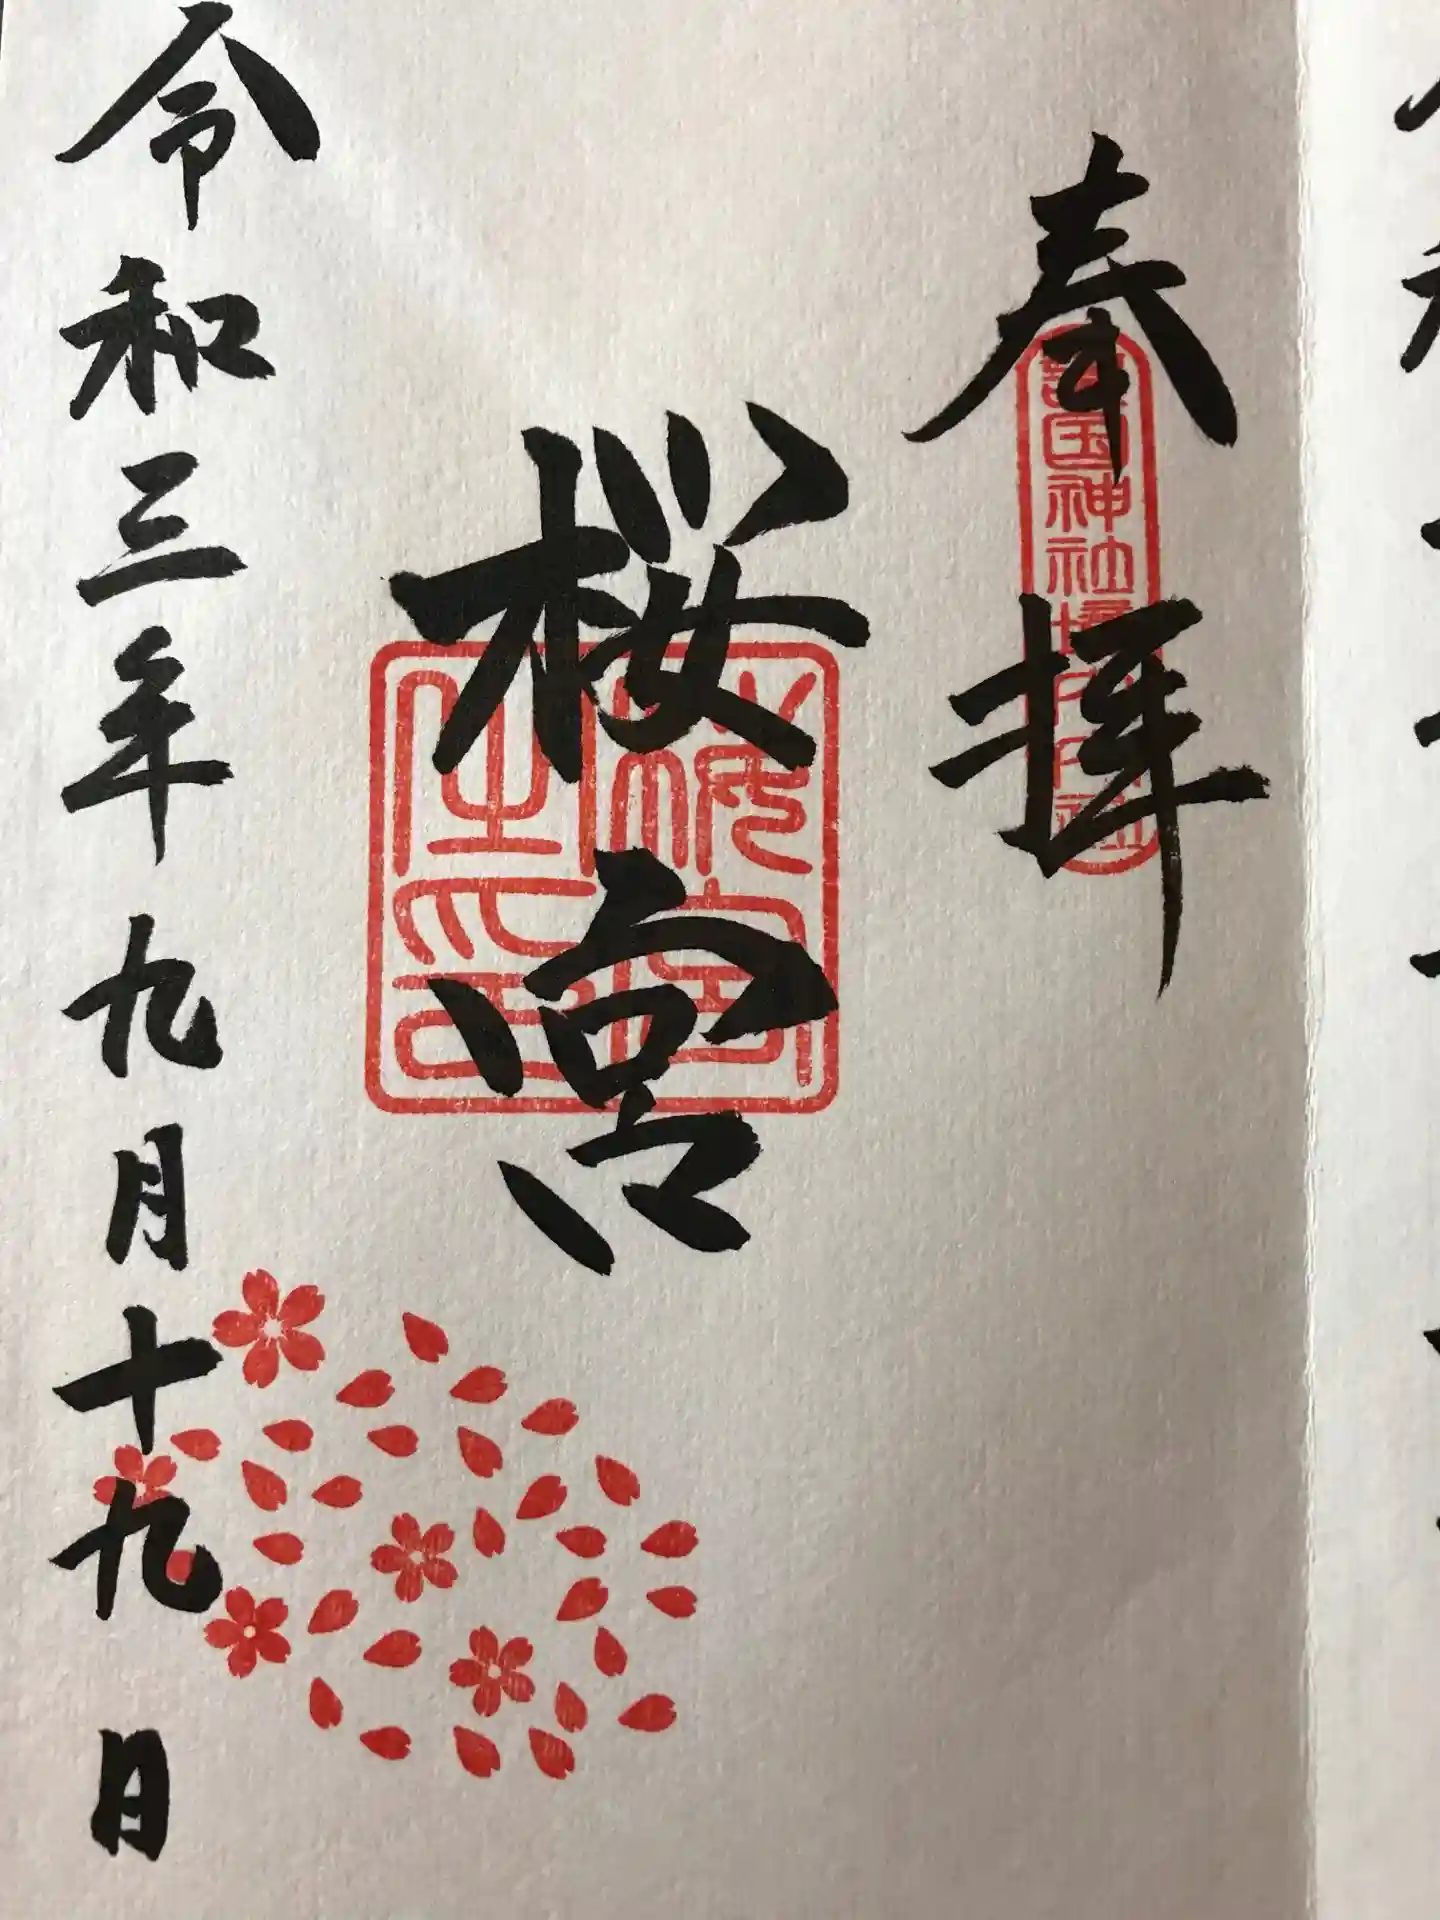 奉拝
護国神社境内内社
桜宮
桜宮之印
令和三年九月十九日